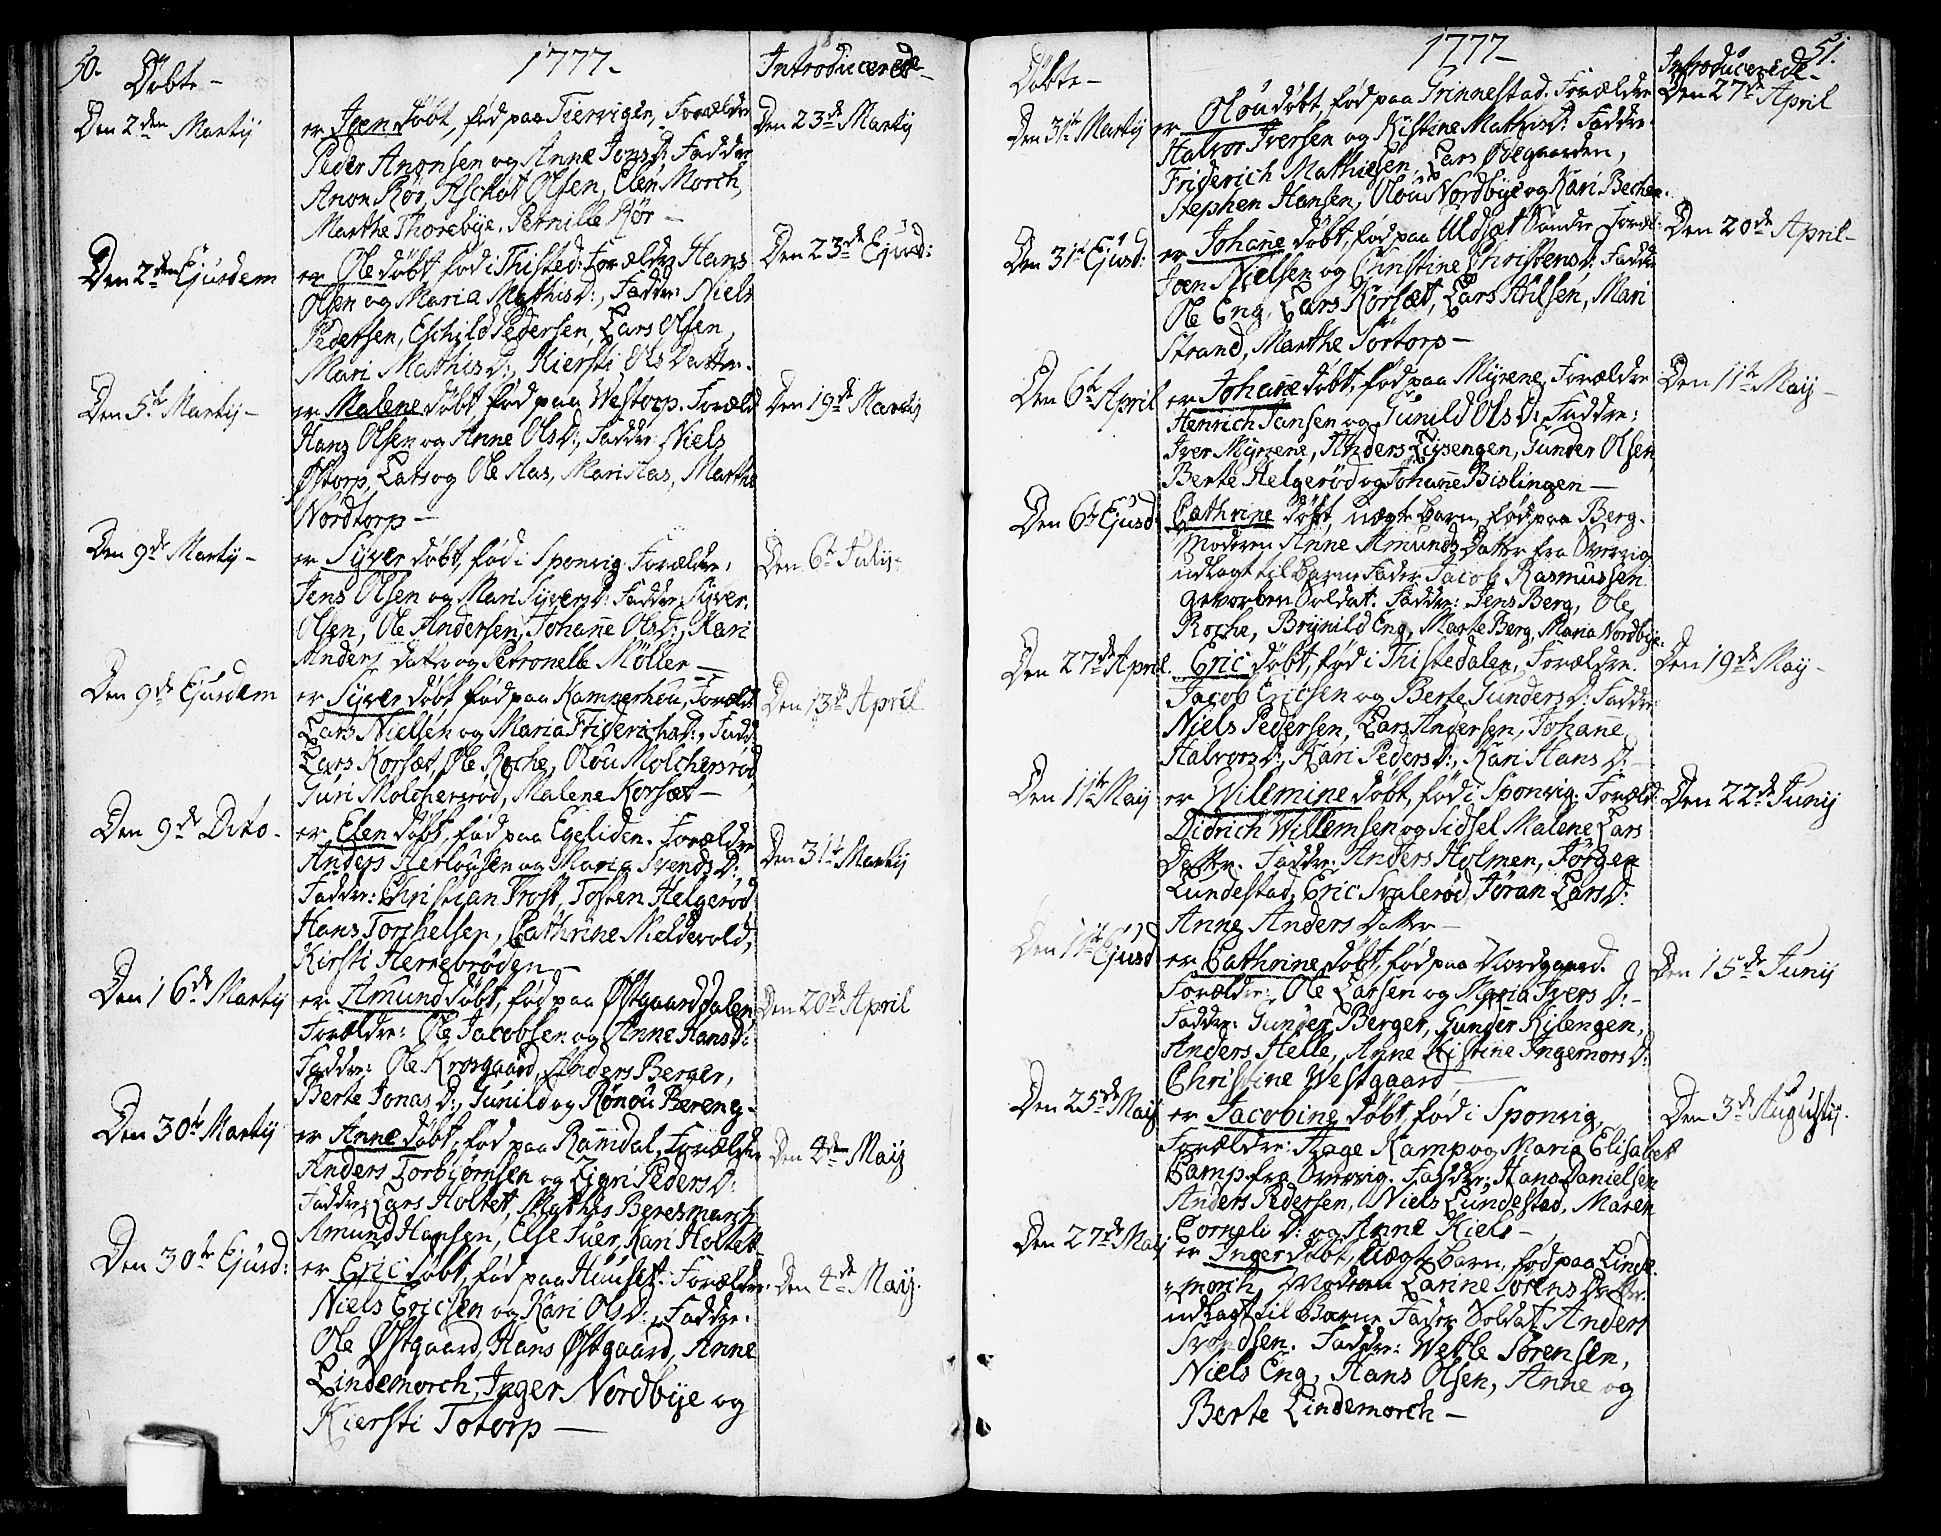 50.
Döbte -
1777-
Introducerede-
Den 2den Martij
er Joen döbt, fød paa Tiervigen, Forældre
Den 23de Martij
Peder Anonsen og Anne Jons D: Faddr
Anon Rør, Aschat Olsen, Elen Morch,
Marthe Thorebye, Pernille Rør -
Den 2den Ejusdem
er Ole döbt fød i Thisted: Forældre Hans
Den 23de Ejusd:
Olsen og Maria Mathis D:, Faddr: Niels
Pedersen, Eschild Pedersen, Lars Olsen,
Mari Mathis D:, Kiersti Ols Datter.
Den 5te Martij-
er Malene döbt fød paa Westorp. Foræld
Den 19de Martij
Hans Olsen og Anne Ols D:, Faddr: Niels
Østorp, Lars og Ole Aas, Mari Aas, Marthe
Nordtorp -
Den 9de Martij-
er Syver döbt, fød i Sponvig. Forældre,
Den 6te Julij-
Jens Olsen og Mari Syvers D: Faddr: Syver
Olsen, Ole Andersen, Johanne Ols D:, Kari
Anders datter og Petronelle Möller -
Den 9de Ejusdem
er Syver döbt fød paa Kamperhou, Foræld
Den 13de April
Lars Nielsen og Maria Friderichs D:, Fadd
Lars Korsæt, Ole Roche, Olou Molchersrød,
Guri Molchersrød, Malene Korsæt -
Den 9de Dito-
er Elen döbt, fød paa Egeliden. Forældre
Den 31te Martij
Anders Herlousen og Maria Svends D:,
Faddre: Christian Trost, Tosten Helgerød
Hans Torchelsen, Cathrine Nieldevold,
Kirsti Herrebrøden -
Den 16de Martij
er Amund döbt, fød paa Østgaarddalen
Den 20de April
Forældre: Ole Jacobsen og Anne Hans D:
Faddre: Ole Krosgaard, Anders Berger,
Berte Jonas D:, Gunild og Rønou Bereng -
Den 30te Martij
er Anne döbt, fød paa Ramdal, Forældre
Den 4de Maij
Anders Torbiörnsen og Ligri Peders D:
Faddr: Lars Holtet, Mathis Beresmarch
Amund Hansen, Else Juer, Kari Holtet
Den 30te Ejusd:
er Eric döbt, fød paa Huuset. Forældre:
Den 4de Maij.
Niels Ericsen og Kari Ols D:, Faddre:
Ole Østgaard, Hans Østgaard, Anne
Lindemorch, Inger Nordbye og
Kiersti Totorp -
51.
Döbte -
1777-
Introducerede-
Den 31te Martij
er Olou döbt, fød paa Grinnestad. Forældre
Den 27de April
Halvor Iversen og Kistine Mathis D: Faddre.
Friderich Mathiesen, Lars Ödegaarden,
Stephen Hansen, Olou Nordbye og Kari Bechen.
Den 31te Ejusd:
er Johanne döbt, fød paa Uldsæt Søndre Foræl:
Den 20de April-
Joen Nielsen og Christine Christens D: Faddr
Ole Eng, Lars Korsæt, Lars Nilsen, Mari
Strand, Marthe Sörtorp -
Den 6te April
er Johanne döbt, fød paa Myrene, Forældre
Den 11te Maij -
Henrich Jansen og Gunild Ols D: Faddre:
Iver Myrene, Anders Liisengen, Gunder Olsen,
Berte Helgerød og Johanne Bislingen -
Den 6te Ejusd:
Cathrine döbt, uægte barn fød paa Berg.
Moderen Anne Amunds Datter fra Svervig
udlagt til barne Fader Jacob Rasmussen
gevorben Soldat. Faddre: Jens Berg, Ole
Roche, Brynild Eng, Marte Berg, Maria Nordbye.
Den 27de April
Eric döbt, fød i Thistedalen, Forældre.
Den 19de Maij -
Jacob Ericsen og Berte Gunders D: Faddre:
Niels Pedersen, Lars Andersen, Johanne
Halvors D:, Kari Peders D:, Kari Hans D:-
Den 11te Maij
er Wilemine döbt, fød i Sponvig. Foræld:
Den 22de Junij
Didrich Willemsen og Sidsel Malene Lars
Datter. Faddre: Anders Holmen, Jörgen
Lundestad, Eric Svalerød, Jöran Lars D:
Anne Anders Datter -
Den 11te Ejusd
er Cathrine döbt, fød paa Nordgaard.
Den 15de Junij
Forældre: Ole Larsen og Maria Ivers D:-
Faddre: Gunder Berger, Gunder Kilengen,
Anders Helle, Anne Kistine Ingemors D:
Christine Westgaard -
Den 25de Maij
er Jacobine döbt, fød i Sponvig
Den 3de Augustij.
Forældre: Aage Kamp og Maria Elisabet
Camp fra Svervig. Faddre: Hans Danielsen
Anders Pedersen, Niels Lundestad, Maren
Corneli D: og Anne Kiels -
Den 27de Maij
er Inger döbt, uægte barn, fød paa Linde-
=morch, Moderen Larine Sörens Datter.
udlagt til Barne Fader Soldat Anders
Svendsen. Faddre: Wetle Sörensen,
Niels Eng, Hans Olsen, Anne og
Berte Lindemorch -